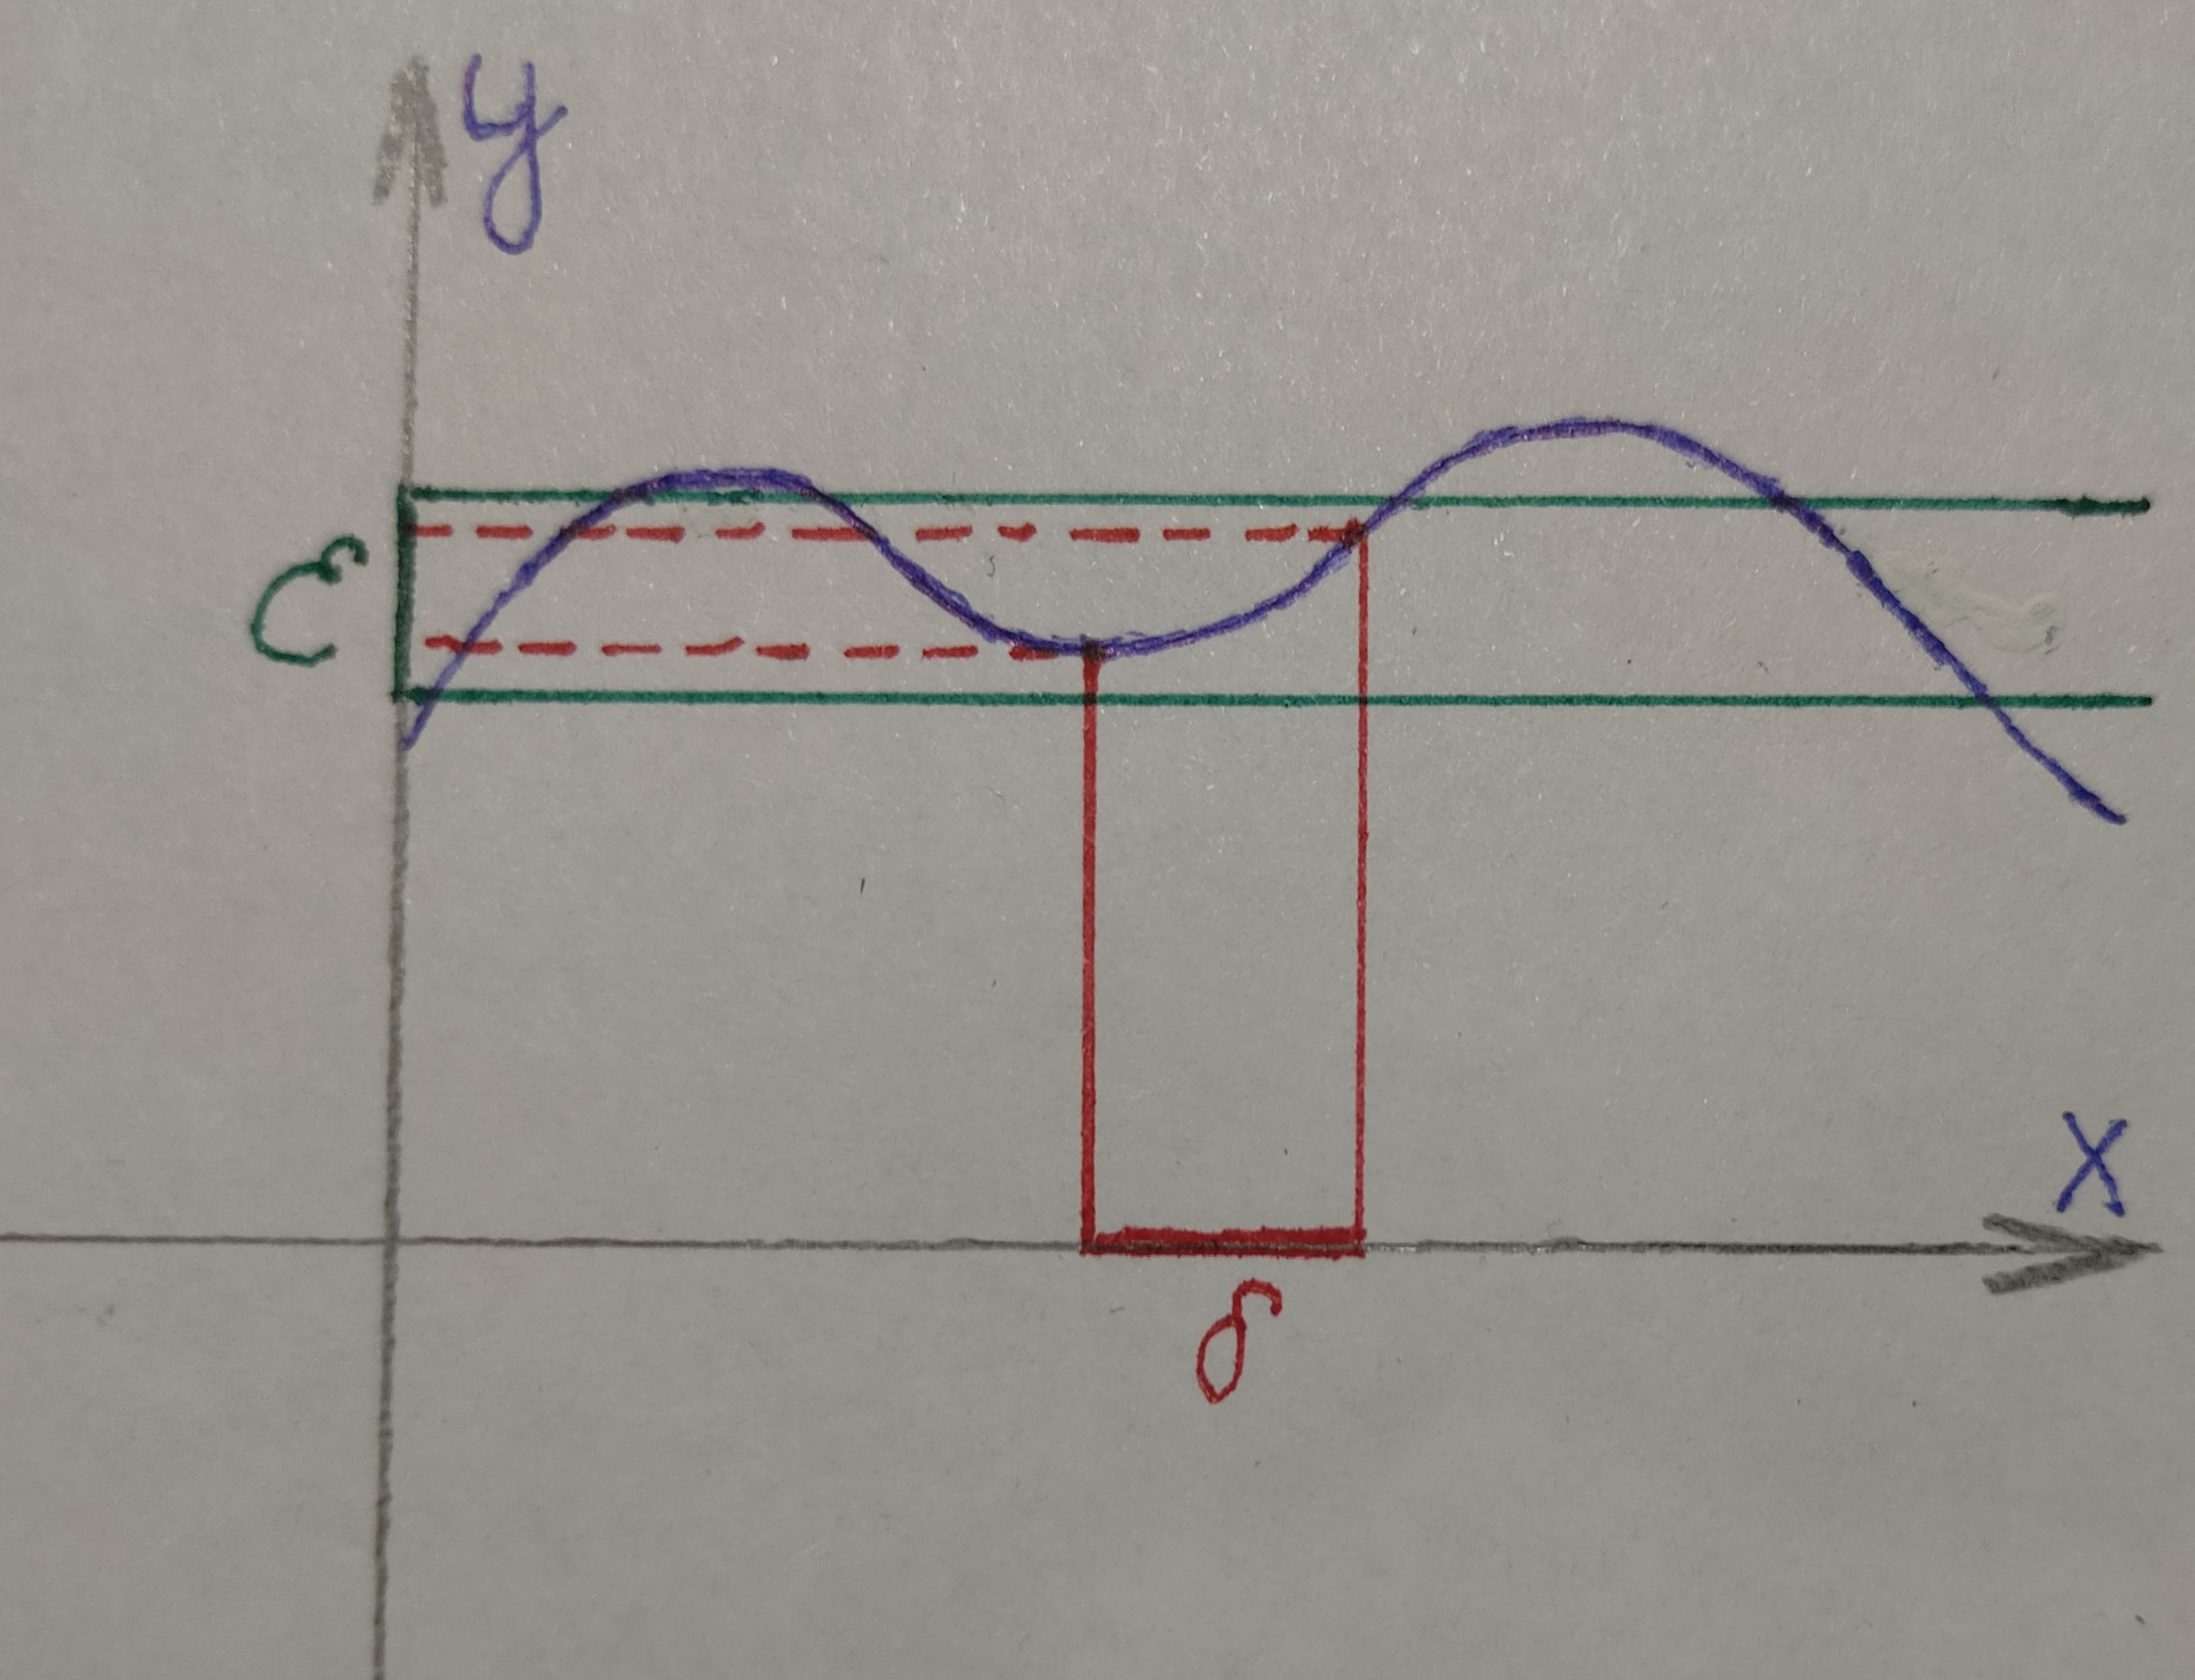 y
ε
x
δ